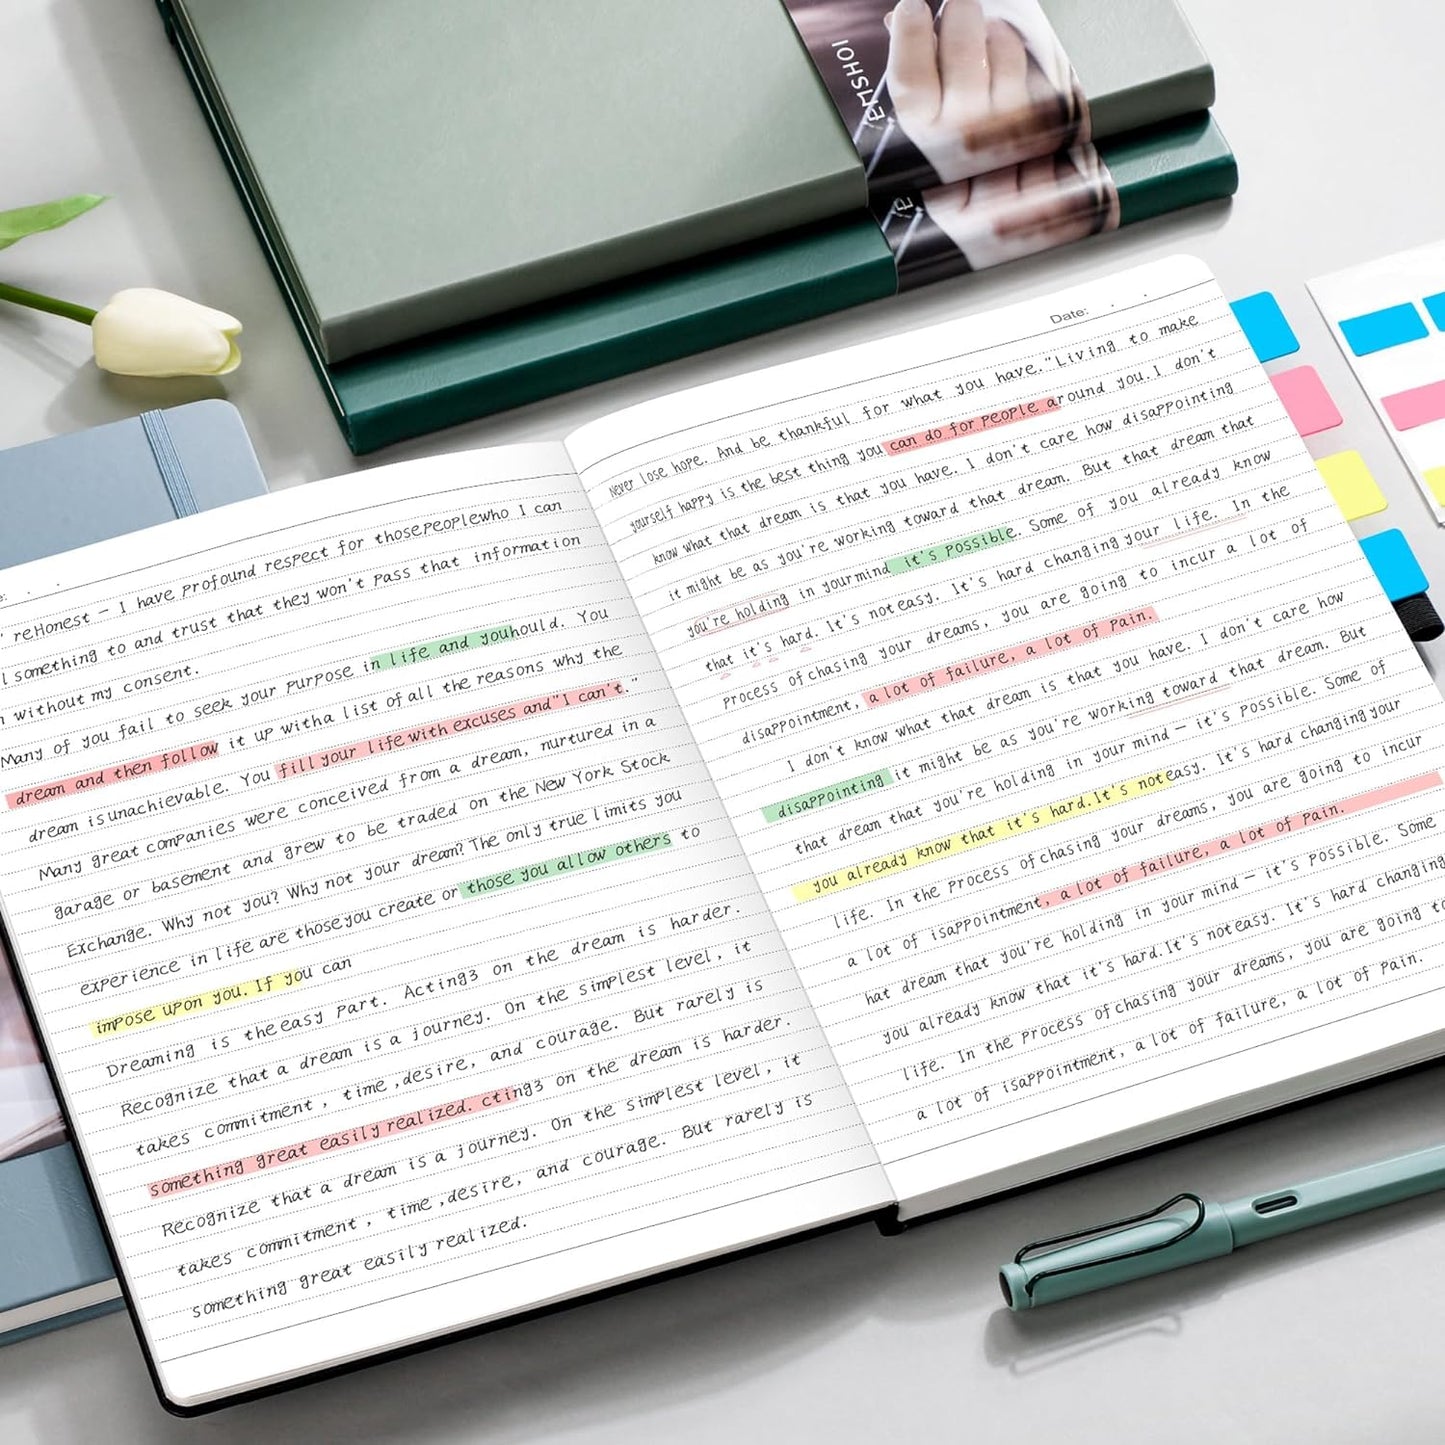 EMSHOI
E
e:
' reHonest – I have profound respect for thosepeoplewho I can
l something to and trust that they won't pass that information
n without my consent.
Many of you fail to seek your purpose in life and youhould. You
dream and then follow it up witha list of all the reasons why the
dream isunachievable. You fill your life with excuses and "I can't."
Many great companies were conceived from a dream, nurtured in a
garage or basement and grew to be traded on the New York Stock
Exchange. Why not you? Why not your dream? The only true limits you
experience in life are thoseyou create or those you allow others to
impose upon you. If you can
Dreaming is theeasy part. Acting3 on the dream is harder.
Recognize that a dream is a journey. On the simplest level, it
takes commitment, time ,desire, and courage. But rarely is
something great easily realized. cting3 on the dream is harder.
Recognize that a dream is a journey. On the simplest level, it
takes commitment, time ,desire, and courage. But rarely is
something great easily realized.
Date:
Never lose hope. And be thankful for what you have."Living to make
yourself happy is the best thing you can do for people around you.I don't
know what that dream is that you have. I don't care how disappointing
it might be as you're working toward that dream. But that dream that
you're holding in yourmind it's possible. Some of you already know
that it's hard. It's noteasy. It's hard changing your life. In the
process of chasing your dreams, you are going to incur a lot of
disappointment, a lot of failure, a lot of pain.
I don't know what that dream is that you have. I don't care how
disappointing it might be as you're working toward that dream. But
that dream that you're holding in your mind – it's possible. Some of
you already know that it's hard.It's noteasy. It's hard changing your
life. In the process of chasing your dreams, you are going to incur
a lot of isappointment, a lot of failure, a lot of pain.
hat dream that you're holding in your mind – it's possible. Some
you already know that it's hard.It's noteasy. It's hard changing
life. In the process of chasing your dreams, you are going to
a lot of isappointment, a lot of failure, a lot of pain.